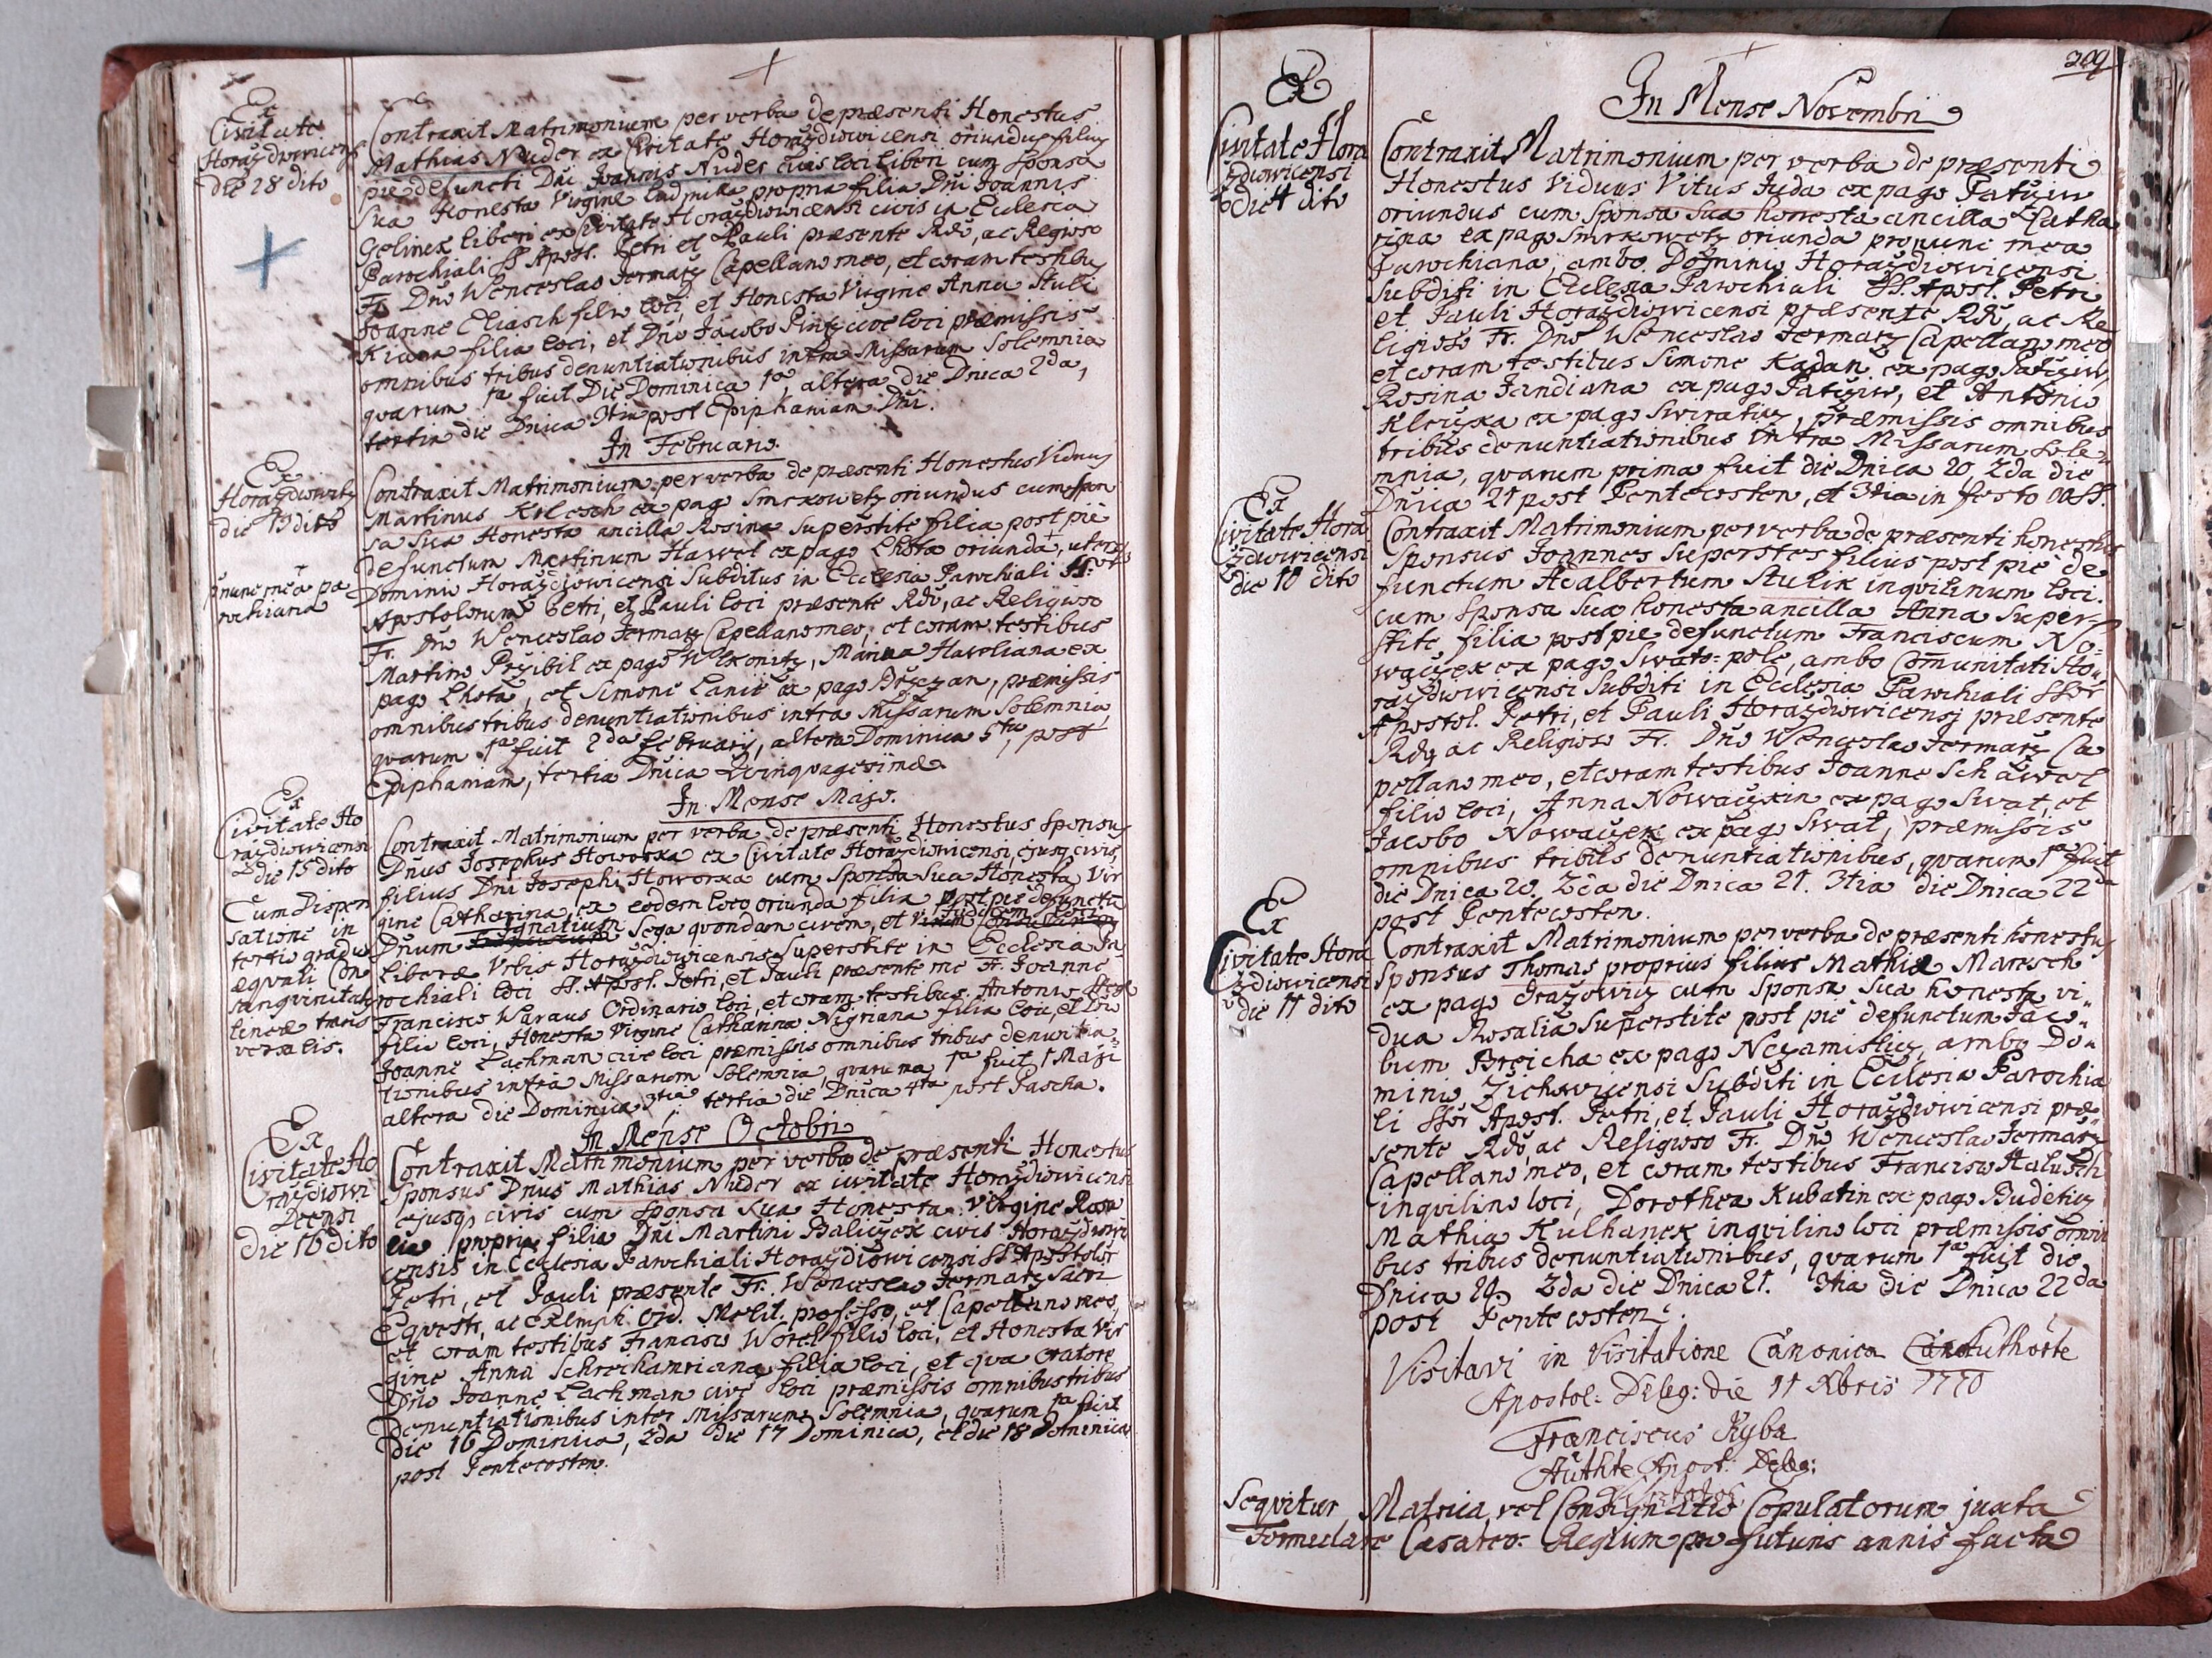 Ex
Civitate
Horazdiowicensi
die 28 dito
Contraxit Matrimonium per verba de præsenti Honestus
Mathias Nuder ex Civitate Horazdiowicensi oriundus filius
pie defuncti Dni Joannis Nuder civis loci liberi cum sponsa
sua Honesta Virgine Ludmilla propria filia Dni Joannis
Gelinek liberi ex Civitate Horazdiowicensi civis in Ecclesia
Parochiali SS Apost. Petri et Pauli præsente Rdo, ac Regioso
Fr. Dno Wenceslao Jermarz Capellano meo, et coram testibus
Joanne Eliasch filio loci, et Honesta Virgine Anna Stuli
Kiana filia loci, et Dno Jacobo Pintz cive loci præmissis
omnibus tribus denuntiationibus intra Missarum Solemnia
quarum 1a fuit Die Dominica 1a, altera die Dnica 2da,
tertia die Dnica 3tia post Epiphaniam Dni.
In Februario
Ex
Horazdiowitz
die 13 dito
pnunc mea pa
rochiana
Contraxit Matrimonium per verba de præsenti Honestus Viduus
Martinus Krlesch ex pago Smrkowetz oriundus cum spon
sa sua Honesta ancilla Rosina superstite filia post pie
defunctum Martinum Hawel ex pago Lhota oriunda, uterq
Dominio Horazdiowicensi Subditus in Ecclesia Parochiali SS.
Apostolorum Petri, et Pauli loci præsente Rdo, ac Religioso
Fr. Dno Wenceslao Jermarz Capellano meo, et coram testibus
Martino Przibil ex pago Wlkonitz, Marina Haweliana ex
pago Lhota, et Simone Lanie ex pago Brzezan, præmissis
omnibus tribus denuntiationibus intra Missarum Solemnia,
quarum 1a fuit 2da februarij, altera Dominica 5ta, post
Epiphaniam, tertia Dnica Quinquagesimæ.
In Mense Majo.
Ex
Civitate Ho
razdiowicensi
die 15 dito
Cum Dispen
satione in
tertio gradu
æquali Con
sanguinitatis
lineæ trans
versalis.
Contraxit Matrimonium per verba de præsenti Honestus Sponsus
Dnus Josephus Howorka ex Civitate Horazdiowicensi, ejusq civis,
filius Dni Josephi Howorka cum Sponsa sua Honesta Vir
gine Catharina ex eodem loco oriunda filia post pie defunctu
Dnum Ignatium Sega quondam civem, et Judicem loci
liberæ Urbis Horazdiowicensis superstite in Ecclesia Pa
rochiali loci SS. Apost. Petri, et Pauli præsente me Fr. Joanne
Francisco Waraus Ordinario loci, et coram testibus Antonio
filio loci, Honesta Virgine Catharina Nigriana filia loci, et Dno
Joanne Lachman cive loci præmissis omnibus tribus denuntia
tionibus intra Missarum Solemnia, quarum 1a fuit 1 Maji
altera die Dominica 3tia tertia die Dnica 4ta post Pascha.
In Mense Octobri
Ex
Civitate Ho
razdiowi
censi
die 16 dito
Contraxit Matrimonium per verba de præsenti Honestus
Sponsus Dnus Mathias Nuder ex civitate Horazdiowicensi
ejusq civis cum sponsa sua Honesta Virgine Rosa
lia propria filia Dni Martini Baliczek civis Horazdiowi
censis in Ecclesia Parochiali Horazdiowicensi SS Apostolor
Petri, et Pauli præsente Fr. Wenceslao Jermarz Sacri
Equestr, ac Exempti Ord. Melit. professo, et Capellano meo,
et coram testibus Francisco Worel filio loci, et Honesta Vir
gine Anna Schrechamriana filia loci, et qua oratore
Dno Joanne Lachman cive loci præmissis omnibus tribus
denuntiationibus inter Missarum Solemnia, quarum 1a fuit
die 16 Dominica, 2da die 17 Dominica, et die 18 Dominica
post Pentecosten.
209
In Mense Novembri
Ex
Civitate Hora
zdiowicensi
die 4 dito
Contraxit Matrimonium per verba de præsenti
Honestus Viduus Vitus Juda ex pago Patziw
oriundus cum Sponsa sua honesta ancilla Catha
rina ex pago Smrkowetz oriunda pronunc mea
Parochiana, ambo Dominio Horazdiowicensi
Subditi in Ecclesia Parochiali SS. Apost. Petri
et Pauli Horazdiowicensi præsente Rdo, ac Re
ligioso Fr. Dno Wenceslao Jermarz Capellano meo
et coram testibus Simone Kadan ex pago Patziw,
Rosina Jandiana ex pago Patziw, et Antonio
Kleczka ex pago Swiratitz, præmissis omnibus
tribus denuntiationibus intra Missarum sole
mnia, quarum prima fuit die Dnica 20, 2da die
Dnica 21 post Pentecosten, et 3tia in festo OO.SS.
Ex
Civitate Hora
zdiowicensi
die 10 dito
Contraxit Matrimonium per verba de præsenti honestus
Sponsus Joannes superstes filius post pie de
functum Adalbertum Stulik inquilinum loci
cum Sponsa sua honesta ancilla Anna super
stite filia post pie defunctum Franciscum No
waczek ex pago Swato=pole, ambo Comunitati Ho
razdiowicensi Subditi in Ecclesia Parochiali SSor
Apostol. Petri, et Pauli Horazdiowicensi præsente
Rdo, ac Religioso Fr. Dno Wenceslao Jermarz Ca
pellano meo, et coram testibus Joanne Schawel
filio loci, Anna Nowaczkin ex pago Swat, et
Jacobo Nowaczek ex pago Swat, præmissis
omnibus tribus denuntiationibus, quarum 1a fuit
die Dnica 20, 2da die Dnica 21. 3tia die Dnica 22da
post Pentecosten.
Ex
Civitate Hora
zdiowicensi
die 11 dito
Contraxit Matrimonium per verba de præsenti honestus
Sponsus Thomas proprius filius Mathiæ Maresch
ex pago Drazowitz cum Sponsa sua honesta vi
dua Rosalia superstite post pie defunctum Jaco
bum Breicha ex pago Nezamislitz, ambo Do
minio Zichowicensi Subditi in Ecclesia Parochia
li SSor Apost. Petri, et Pauli Horazdiowicensi præ
sente Rdo, ac Religioso Fr. Dno Wenceslao Jermarz
Capellano meo, et coram testibus Francisco Haluschi
inquilino loci, Dorothea Kubatin ex pago Budetitz
Mathia Kulhanek inquilino loci præmissis omni
bus tribus denuntiationibus, quarum 1a fuit die
Dnica 20, 2da die Dnica 21. 3tia die Dnica 22da
post Pentecosten.
Visitavi in Visitatione Canonica Authorte
Apostol: Deleg: die 11 Xbris 1770
Franciscus Ryba
Authte Apost: Deleg:
Visitator
Sequitur Matrica vel Consignatio Copulatorum juxta
Formulare Cæsareo-Regium pro futuris annis facta